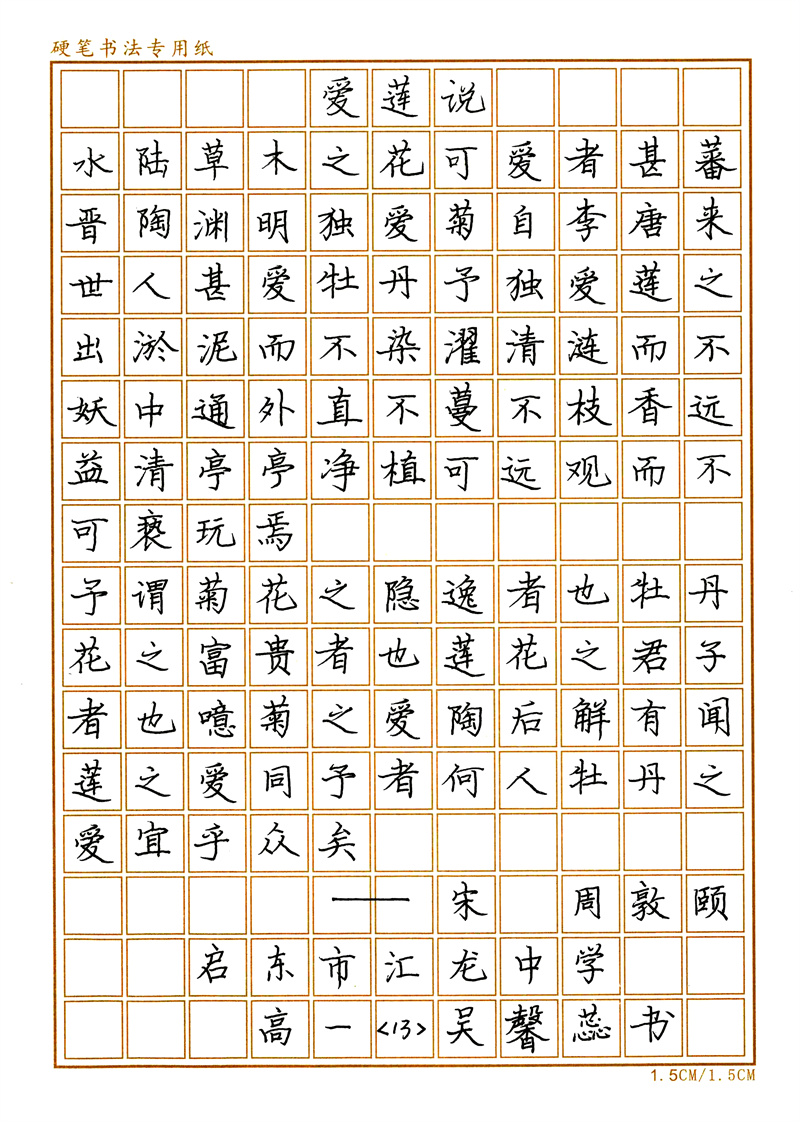 硬笔书法专用纸
爱莲说
水陆草木之花可爱者甚蕃
晋陶渊明独爱菊自李唐来
世人甚爱牡丹予独爱莲之
出淤泥而不染濯清涟而不
妖中通外直不蔓不枝香远
益清亭亭净植可远观而不
可亵玩焉
予谓菊花之隐逸者也牡丹
花之富贵者也莲花之君子
者也噫菊之爱陶后鲜有闻
莲之爱同予者何人牡丹之
爱宜乎众矣
——宋 周敦颐
启东市汇龙中学
高一<13>吴馨蕊书
1.5CM/1.5CM